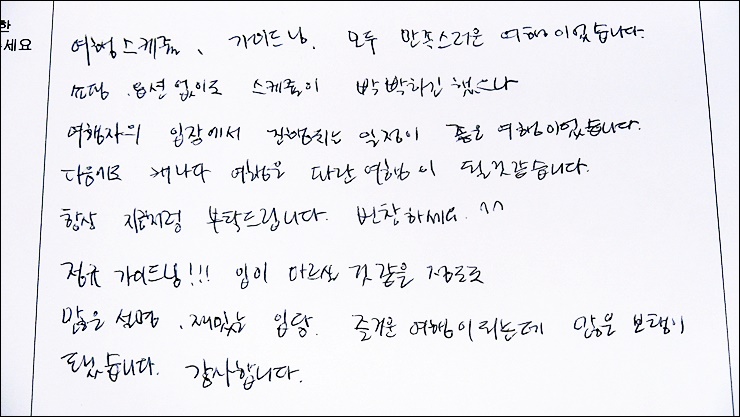 한
세요
여행스케줄, 가이드님. 모두 만족스러운 여행이었습니다.
쇼핑, 옵션없이도 스케줄이 빡빡하긴 했으나
여행자의 입장에서 진행되는 일정이 좋은 여행이었습니다.
다음기도 캐나다 여행은 파란여행이 될것같습니다.
항상 지금처럼 부탁드립니다. 번창하세요. ^^
가이드님!!! 입이 마르실 것 같을 정도로
많은 설명, 재밌는 입담. 즐거운 여행이되는데 많은 보탬이
되었습니다. 감사합니다.